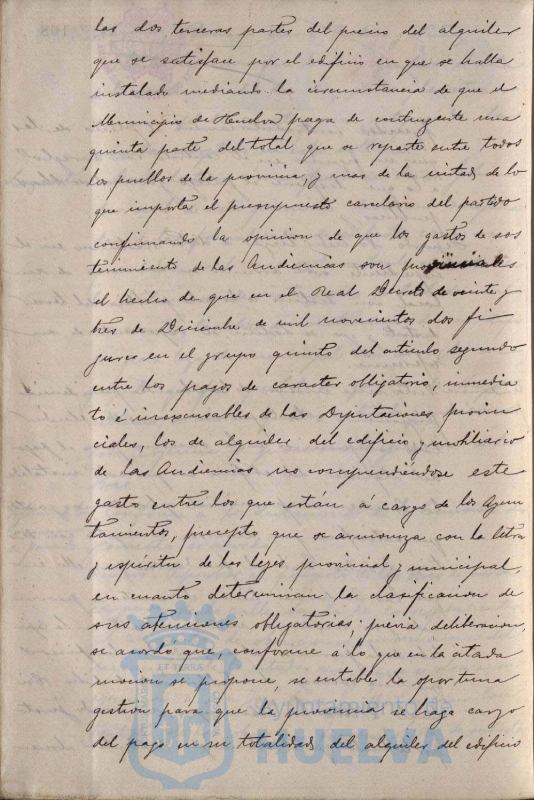 las dos terceras partes del precio del alquiler
que se satisface por el edificio en que se halla
instalado mediando la circunstancia de que el
Municipio de Huelva paga de contingente una
quinta parte del total que se reparte entre todos
los pueblos de la provincia, y mas de la mitad de lo
que importa el presupuesto carcelario del partido
confirmando la opinion de que los gastos de sos
tenimiento de las Audiencias son provinciales
el hecho de que en el Real Decreto de veinte y
tres de Diciembre de mil novecientos dos fi
jure en el grupo quinto del articulo segundo
entre los pagos de caracter obligatorio, inmedia
to é inexcusables de las Diputaciones provin
ciales, los de alquiler del edificio y mobiliario
de las Audiencias no comprendiéndose este
gasto entre los que están á cargo de los Ayun
tamientos, precepto que se armoniza con la letra
y espiritu de las leyes provincial y municipal,
en cuanto determinan la clasificacion de
sus atenciones obligatorias: prévia deliberacion,
se acordó que, conforme á lo que en la citada
mocion se propone, se entable la oportuna
gestión para que la provincia se haga cargo
del pago en su totalidad del alquiler del edificio
HUELVA